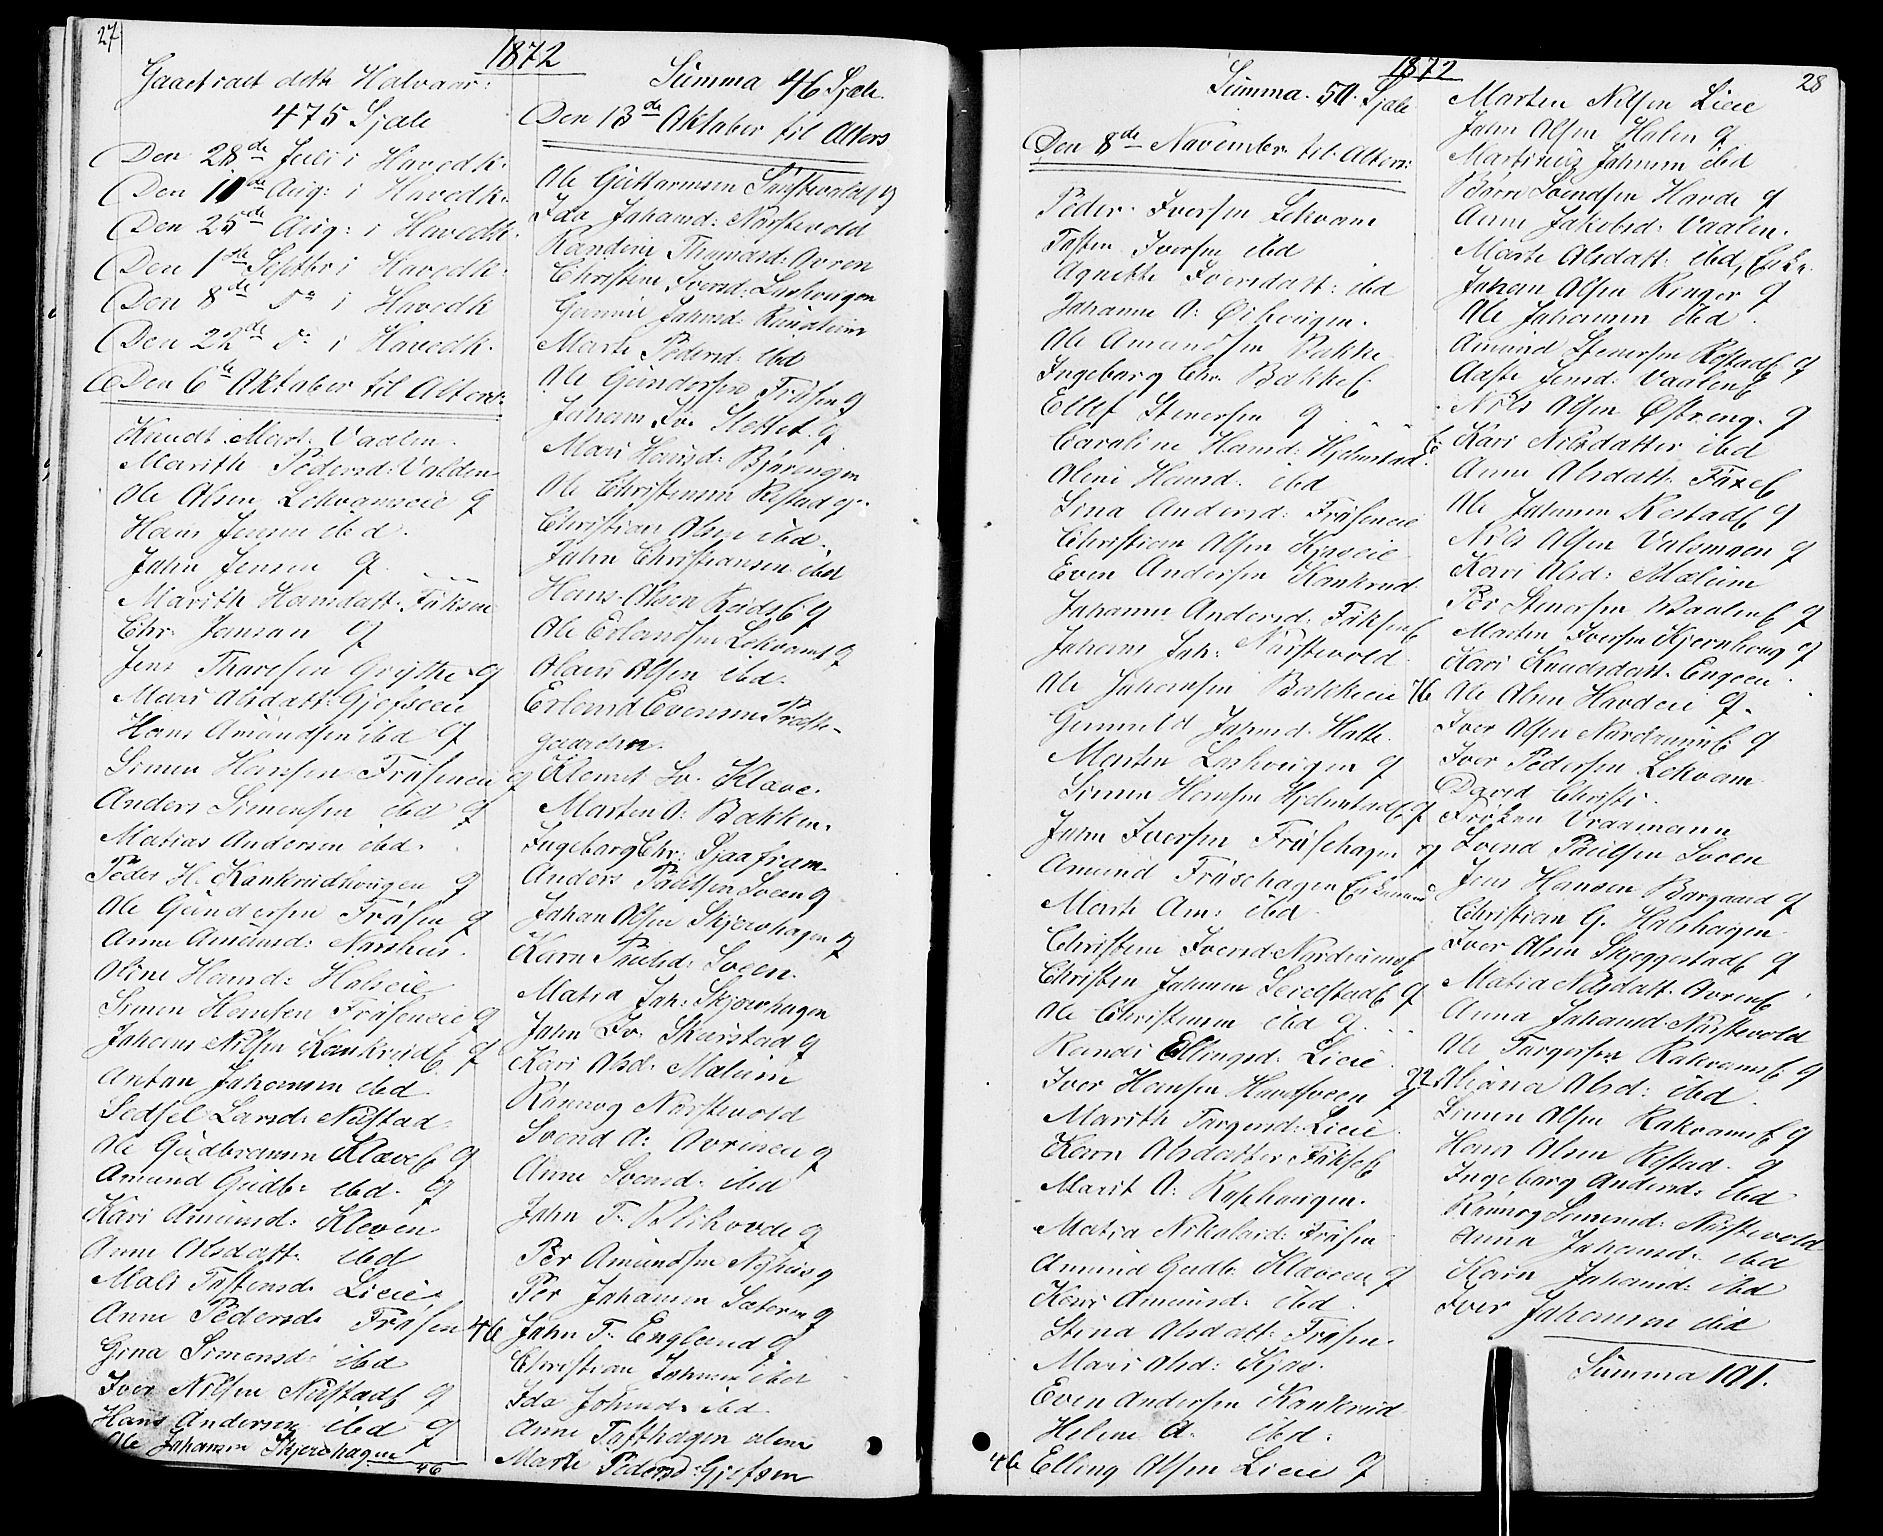 27
1872
Gaaet raet dette Halvaar:
475 Sjæle
Den 28de Juli i Havedk.
Den 11de Aug: i Havedk.
Den 25de Aug: i Havedk.
Den 1ste Septbr i Havedk.
Den 8de do i Havedk
Den 22de do i Havedk.
Den 6te Aktober til Alters:
Knudt Mart. Vaalen.
Marith Pedersd: Valden
Ole Olsen Lekvamseie g
Hans Jensen ibd.
Jahn Jensen g
Marith Hansdatt. Fuksen
Chr. Jansen g
Jens Tharesen Grytte g
Mari Olsdatt. Gjefseie
Hans Amundsen ibd g
Simen Hansen Fråseneie g
Anders Simensen ibd g
Matias Andersen ibd.
Peder H. Kankrudhougen g
Ole Gundersen Fråsen g
Anne Amunds: Narshus.
Oline Hansd: Halieie
Simen Hansen Fråseneie g
Johans Nilsen Kankrud E g
Antan Johansen ibd
Sedsel Larsd: Nustad
Ole Gudbransen Klave E g
Amund Gudb: ibd. g
Kari Amunsd: Kleven
Anne Olsdatt. ibd
Mali Tostensd: Lieie
Anne Pedersd: Fråsen
Gina Simensd: ibd
Iver Nilsen Nustad E g
Hans Andersen ibd g
Ole Johansen Skjershagen
46
Summa 46 Sjæle.
Den 13de Aktober til Alters
Ole Guttormsen Nustevold g
Ida Johansd: Nørstevold
Randine Thomasd: Avren
Christine Iversd: Løshougen
Gunnil Johnsd: Rundtum
Marte Pedersd: ibd
Ole Gundersen Fråsen g
Johans Iv. Slettet g
Mari Hansd: Bjøringen
Ole Christensen Rustad g.
Christian Olsen ibd.
Jahn Christiansen ibd
Hans Olsen Ruds E g
Ole Erlandsen Lekvams g
Olaus Olsen ibd.
Erland Evensen Præste-
gaarden.
Klemet Iv. Klave.
Marten O: Bakken.
Ingebarg Chr: Sjaafram
Anders Paulsen Sveen g
Johan Olsen Skjershagen g
Karn Paulsd: Sveen.
Matia Joh: Skjershagen
Jahn Iv. Skurstad g
Kari Olsd: Mælum
Rannog Nørstevold
Svend A: Avreneie g
Anne Svensd: ibd
Jahn T. Blikovde g
Per Amundsen Nyhus g
Per Johansen Sæteren g
46 Jahn T. Englund g
Christian Johnsen ibd
Ida Johnsd: ibd
Anne Tofthagen alene
Marte Pedersd: Gjefsen
1872
28
Summa. 50. Sjæle
Den 8de November til Alters:
Peder Iversen Lekvam
Tosten Iversen ibd
Agnethe Iversdatt: ibd
Johanne O: Øihougen.
Ole Amundsen Bakke
Ingebarg Chr. Bakke E.
Ellef Stenersen g
Caroline Hansd: Hjelmstad E.
Oline Hansd. ibd
Lina Andersd: Fråseneie
Christian Olsen Kjøseie
Even Andersen Kankrud
Johanne Andersd: Fuksen E
Johans Joh: Nørstevold
Ole Johansen Bakkeeie
Gunnild Johansd: Halte.
Marten Løshougen g
Simen Hansen Hjelmstad E g
Jahn Iversen Fråsehagen g
Amund Fråsehagen Enkemand
Marte Am: ibd
Christine Iversd Nordrum E
Christen Johnsen Seielstad E g
Ole Christensen ibd g
Randi Ellingsd: Lieie
Iver Hansen Haadsveen g
Marith Torgersd: Lieie
Karn Olsdatter Fukse E
Marit A: Kophougen.
Matia Nikolaisd: Fråsen
Amund Gudb. Klaveeie g
Kari Amunsd: ibd.
Stina Olsdatt: Fråsen.
Mari Olsd: Kjøs.
Even Andersen Kankrud
Helene A. ibd.
46 Elling Olsen Lieie g
Marten Nilsen Lieie
Jahn Olsen Halen g
Martinus Johnsen ibd
Børre Svendsen Havde g
Anne Jakobsd: Vaalen.
Marte Olsdatt. ibd, Enke.
Johan Olsen Ringer g
Ole Johansen ibd.
Amund Stenersen Rostad E g
Aaste Jensd: Vaalen E
Nils Olsen Østreng. g
Kari Nilsdatter ibd
Anne Olsdatt. Faxe E
Ole Johnsen Rostad E g
Nils Olsen Valsmoen g
Kari Olsd: Mælum
Per Stenersen Vaalen E g
Marten Iversen Kjernhoug g
Kari Knudsdatt. Engeen
76 Ole Olsen Havdeie g.
Iver Olsen Nordrum E g
Iver Pedersen Lekvam
David Christi.
Frøken Vraamann
Svend Paulsen Sveen
Jens Hansen Bargaard g
Christian G. Halshagen
Iver Olsen Skjeggestad E g
Matia Nilsdatt. Avren E
Anna Johansd: Nørstevold
Ole Torgersen Rakvams E g
Oliana Olsd: ibd.
Simen Olsen Rakvams E g
Hans Olsen Rostad. g
Ingebarg Andersd: ibd
Rannog Simensd: Nørstevold
Anna Johansd: ibd
Karn Johansd: ibd
Iver Johansen ibd
Summa 191.